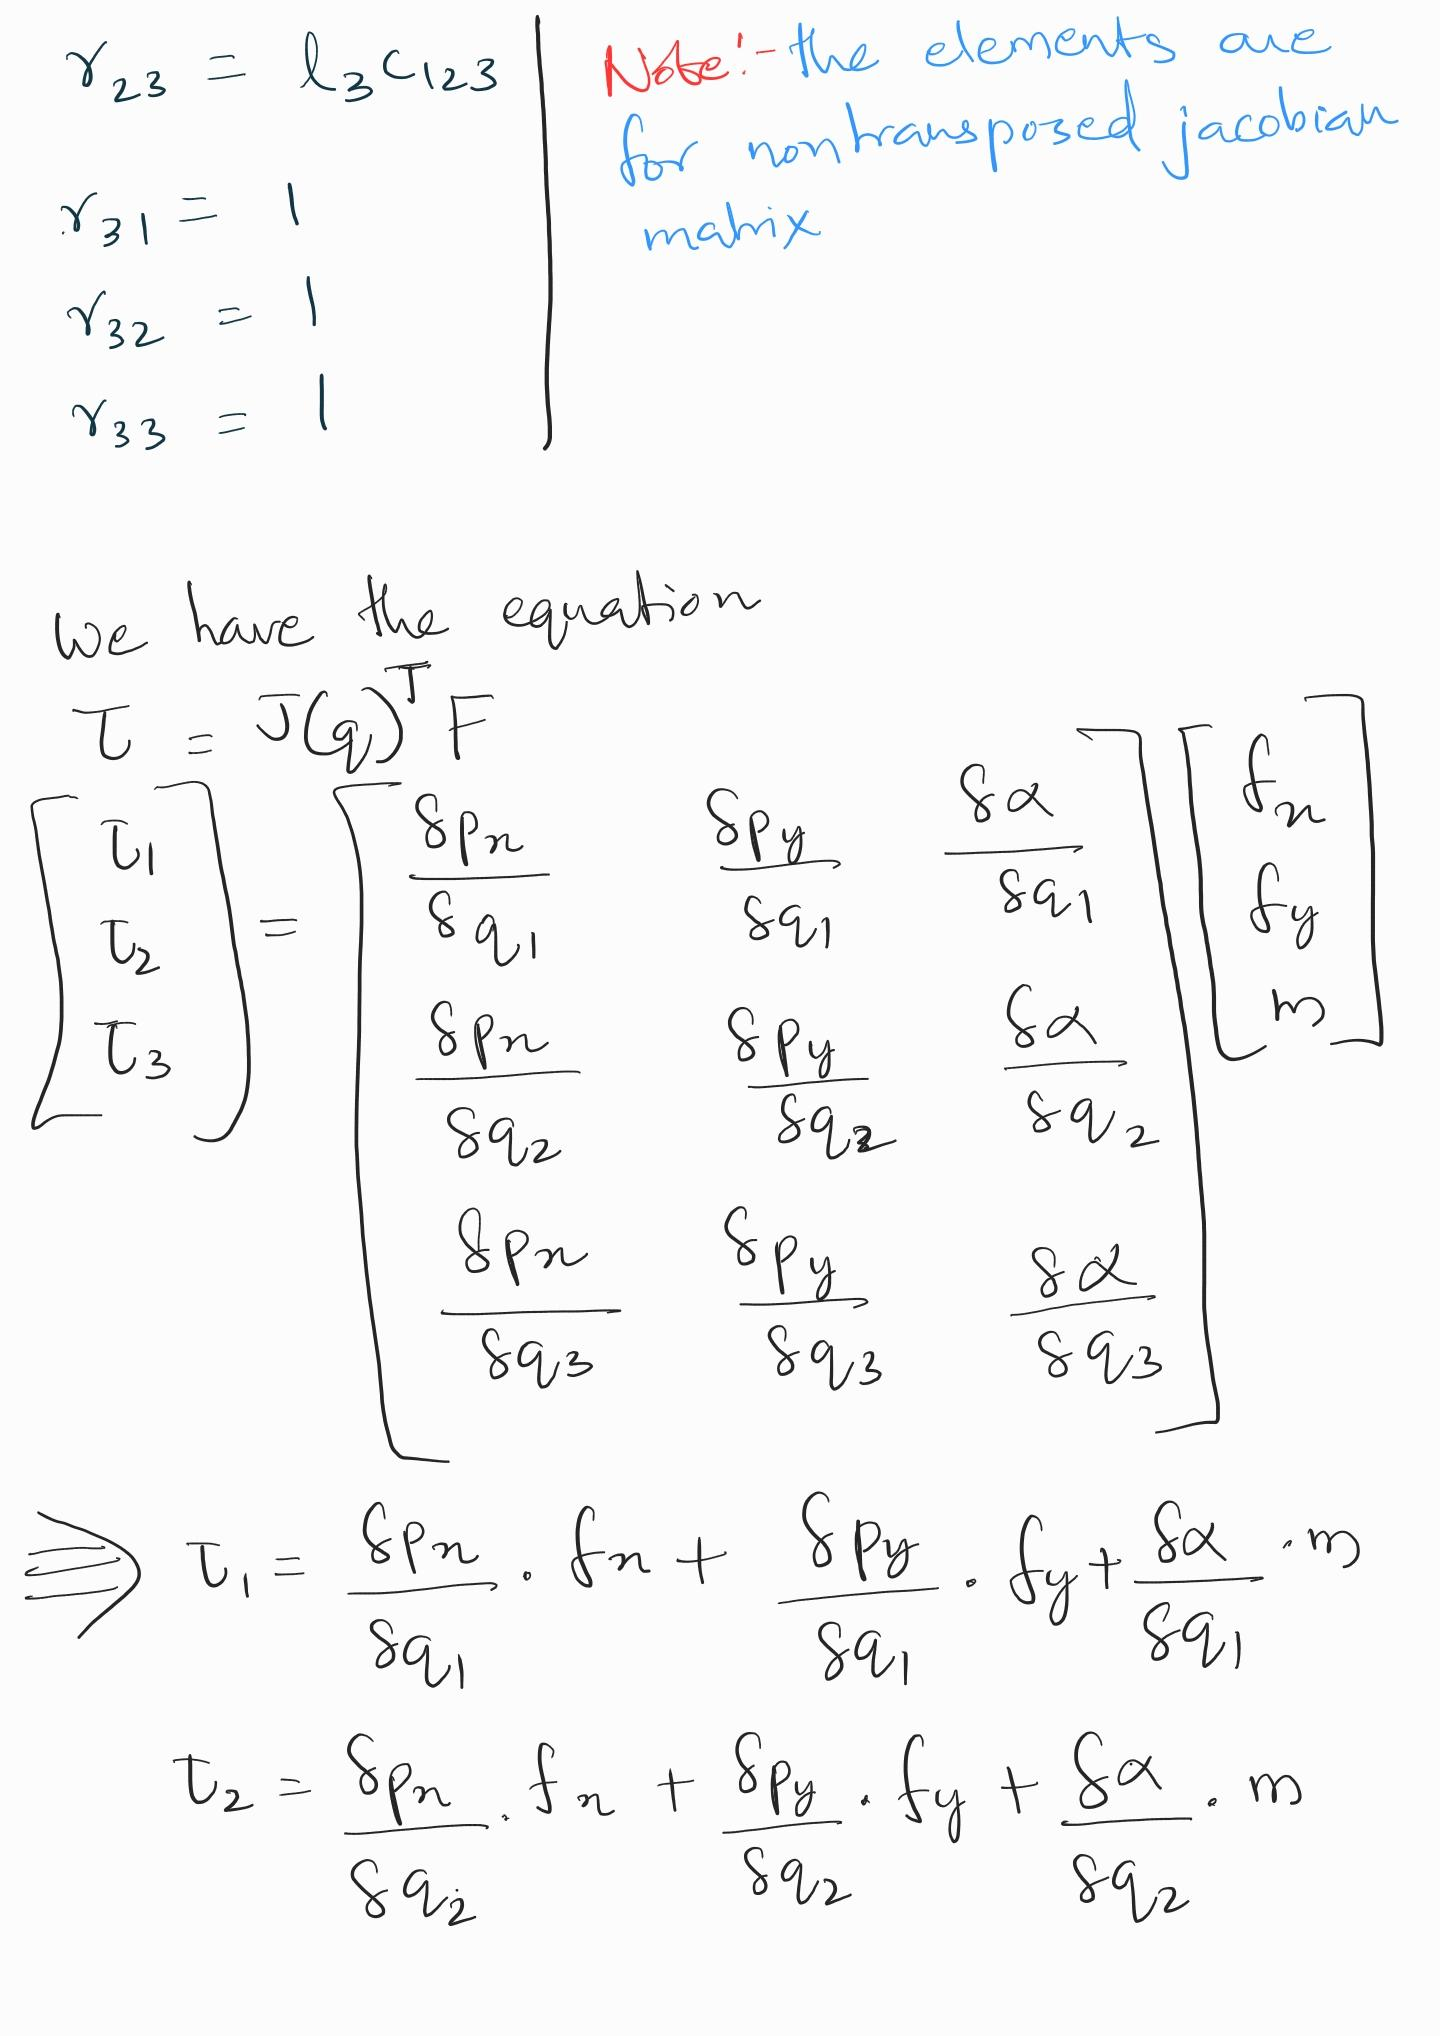 r₂₃ = l₃c₁₂₃
r₃₁ = 1
r₃₂ = 1
r₃₃ = 1
Note:- the elements are
for nontransposed jacobian
matrix
we have the equation
τ = J(q)ᵀ F
[τ₁ τ₂ τ₃] = [δpₓ/δq₁ δp_y/δq₁ δα/δq₁
δpₓ/δq₂ δp_y/δq₂ δα/δq₂
δpₓ/δq₃ δp_y/δq₃ δα/δq₃] [fₓ f_y m]
⇛ τ₁ = δpₓ/δq₁ . fₓ + δp_y/δq₁ . f_y + δα/δq₁ . m
τ₂ = δpₓ/δq₂ . fₓ + δp_y/δq₂ . f_y + δα/δq₂ . m